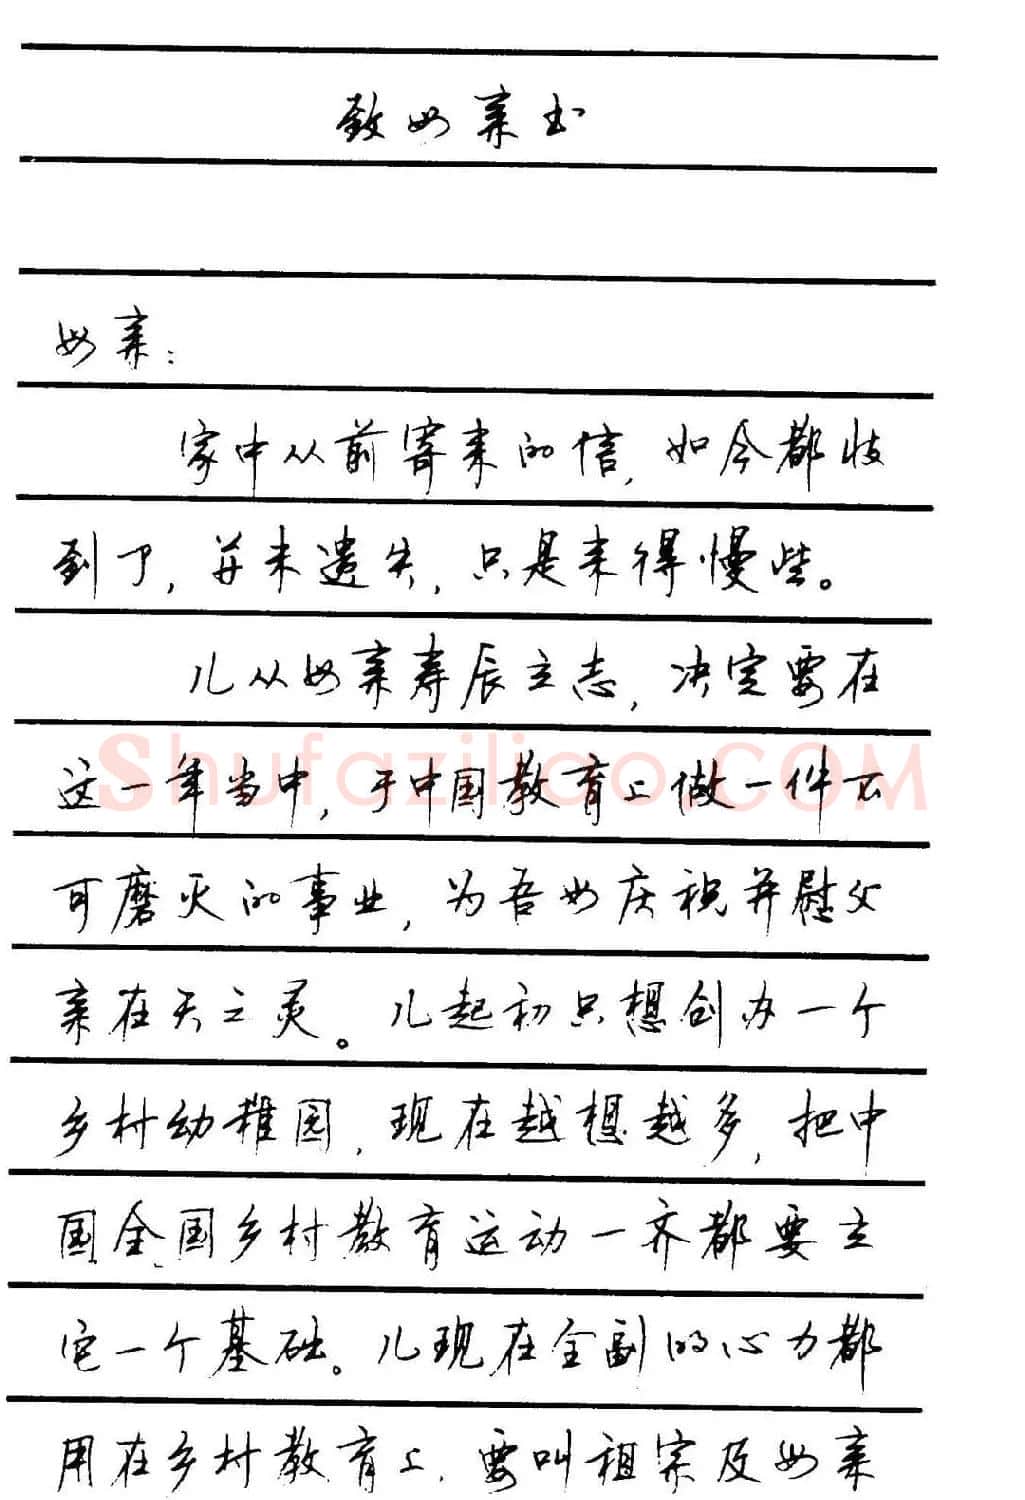 致母亲书
母亲：
家中从前寄来的信，如今都收
到了，并未遗失，只是来得慢些。
儿从母亲寿辰立志，决定要在
这一年当中，于中国教育上做一件不
可磨灭的事业，为吾母庆祝并慰父
亲在天之灵。儿起初只想创办一个
乡村幼稚园，现在越想越多，把中
国全国乡村教育运动一齐都要立
它一个基础。儿现在全副的心力都
用在乡村教育上，要叫祖宗及母亲
Shufaziliao.COM